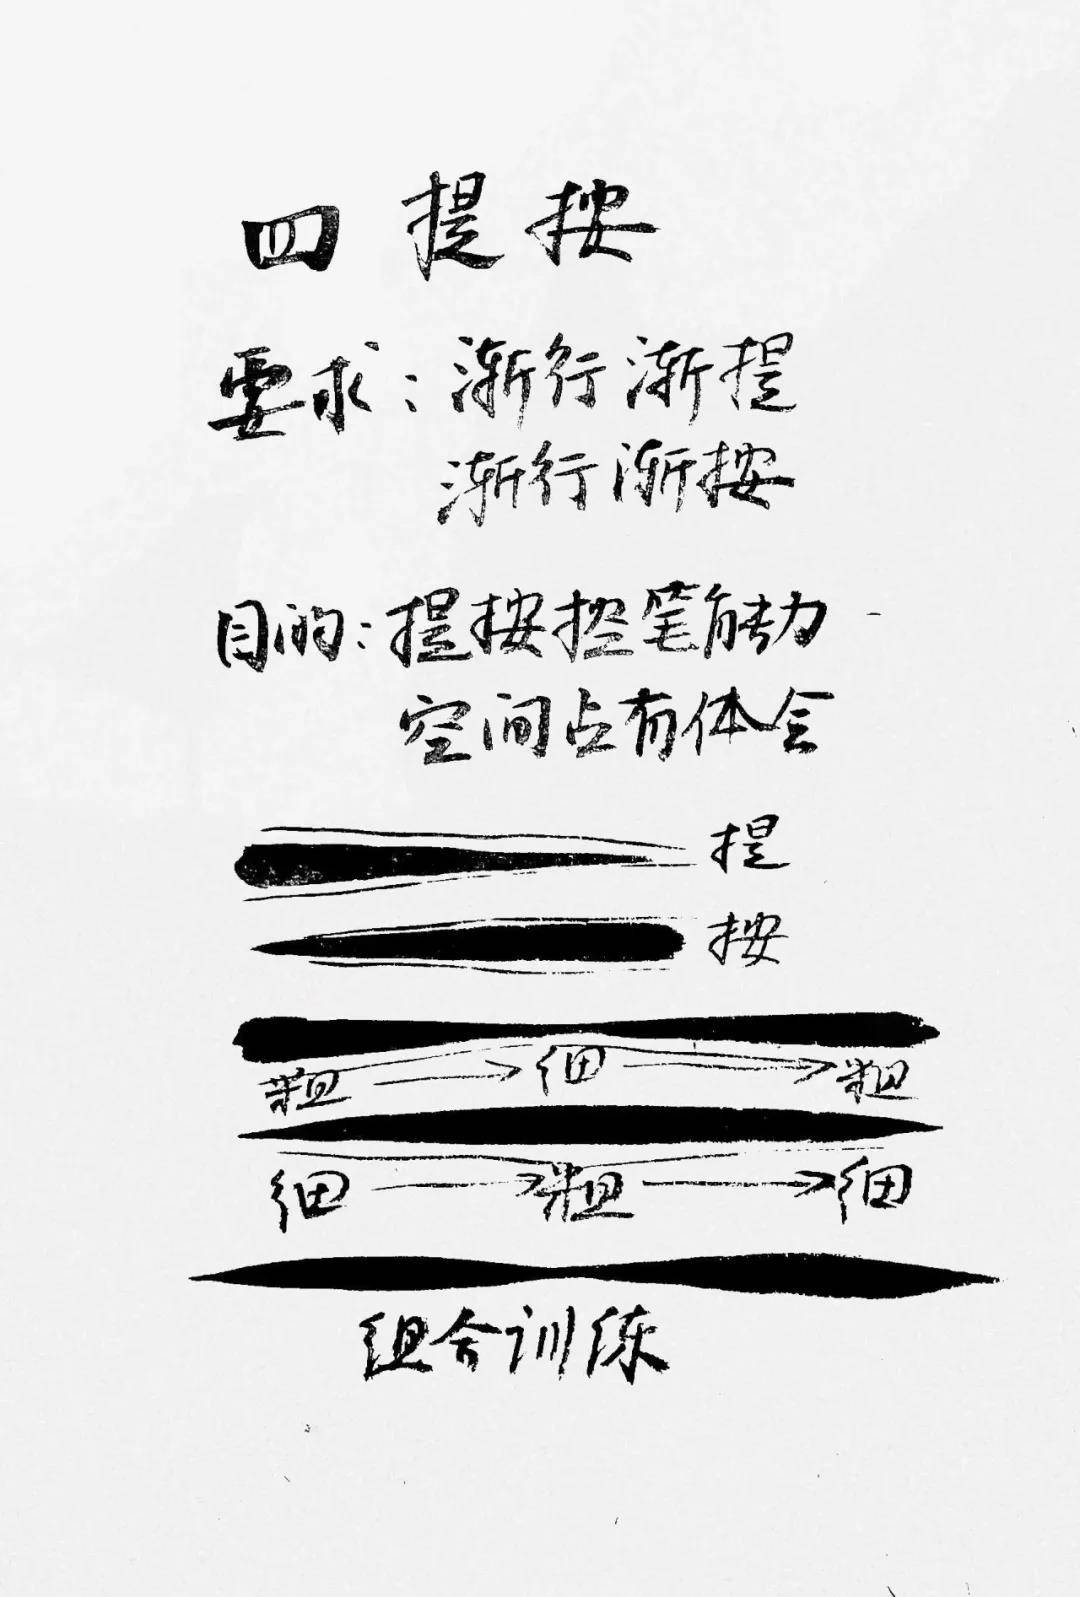 四 提 按
要求：渐行渐提
渐行渐按
目的：提按控笔能力
空间占有体会
提
按
粗 → 细 → 粗
细 → 粗 → 细
组合训练